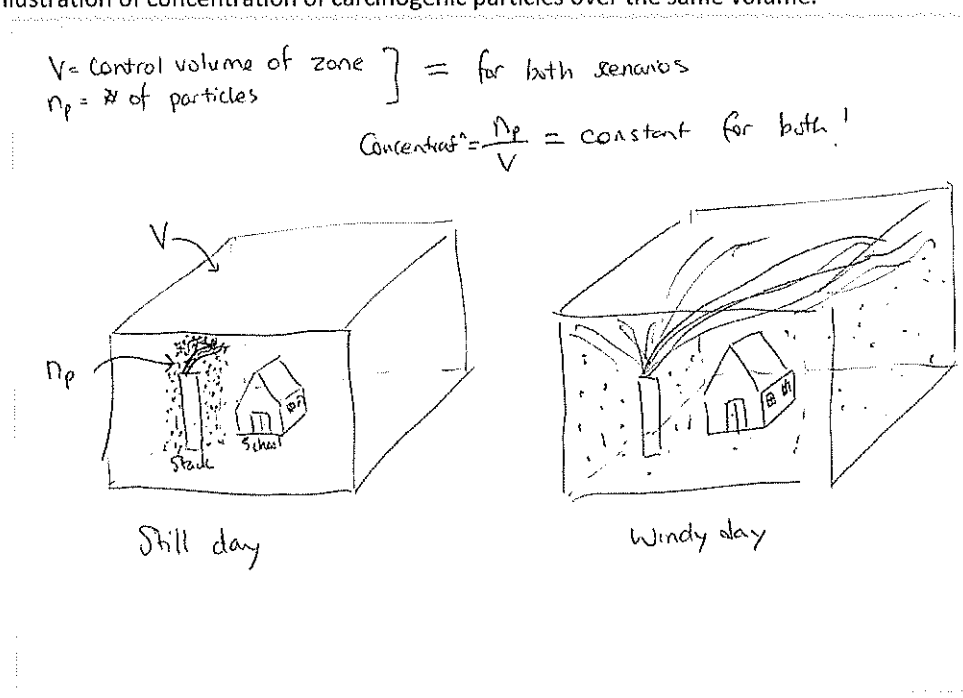 Illustration of concentration of carcinogenic particles over the same volume.
V = Control volume of zone ] = for both senarios
np = # of particles
Concentratn = np / V = constant for both!
V
np
Stack
School
Still day
Windy day